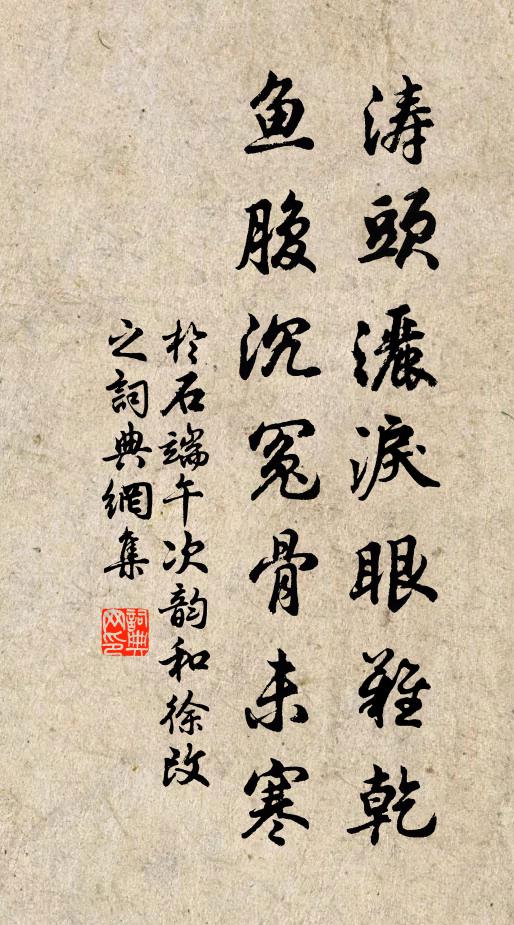 涛頭灑淚眼難乾
鱼腹沉冤骨未寒
於石端午次韵和徐改
之詞典網集
詞典网印